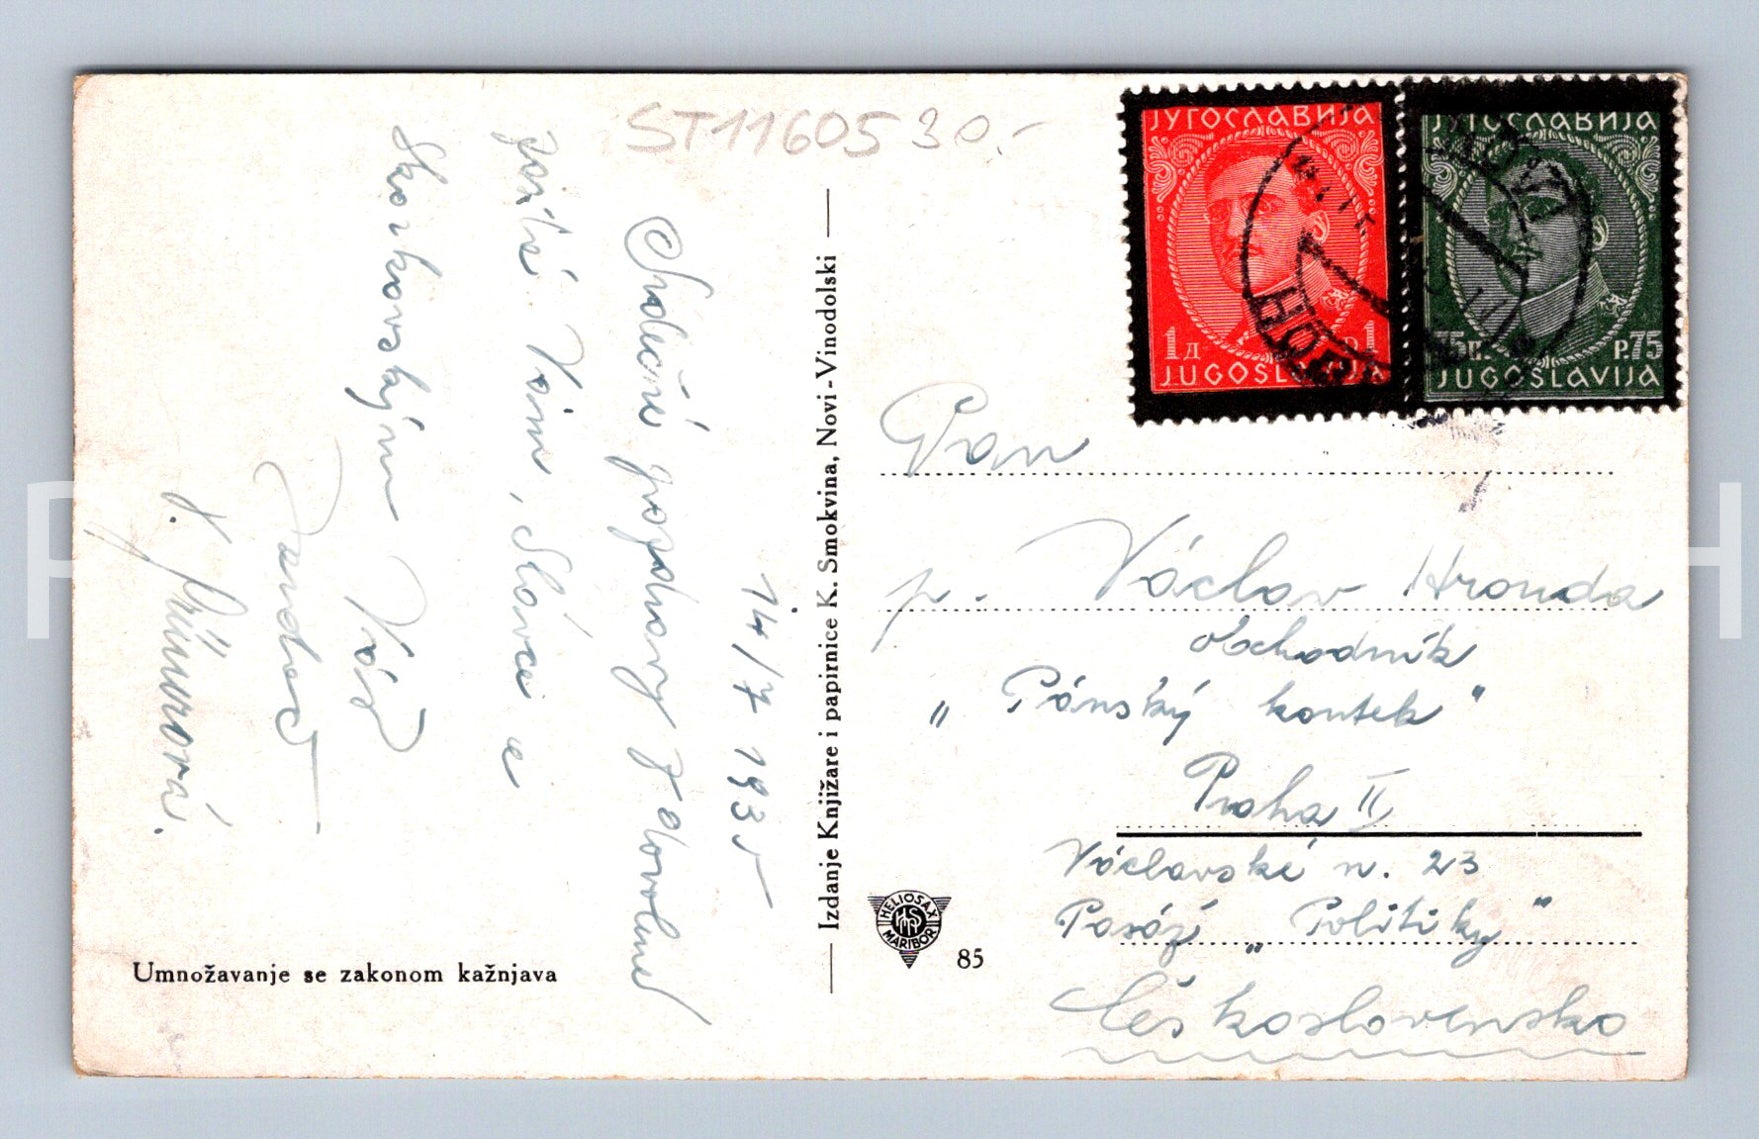 ST11605 30.-
14/7 1935
Srdečné pozdravy z dovolené
Vám, Slávce a
Skorkovským Váš
J. Průmrová.
Umnožavanje se zakonom kažnjava
Izdanje Knjižare i papirnice K. Smokvina, Novi-Vinodolski
HELIOSAX
MARIBOR
85
ЈУГОСЛАВИЈА
1 Д D 1
JUGOSLAVIJA
ЈУГОСЛАВИЈА
75 П. P. 75
JUGOSLAVIJA
NOVI
Pan
p. Václav Hronda
obchodník
„Pánský koutek"
Praha II
Václavské n. 23
Pasáž „Politiky"
Československo
P H